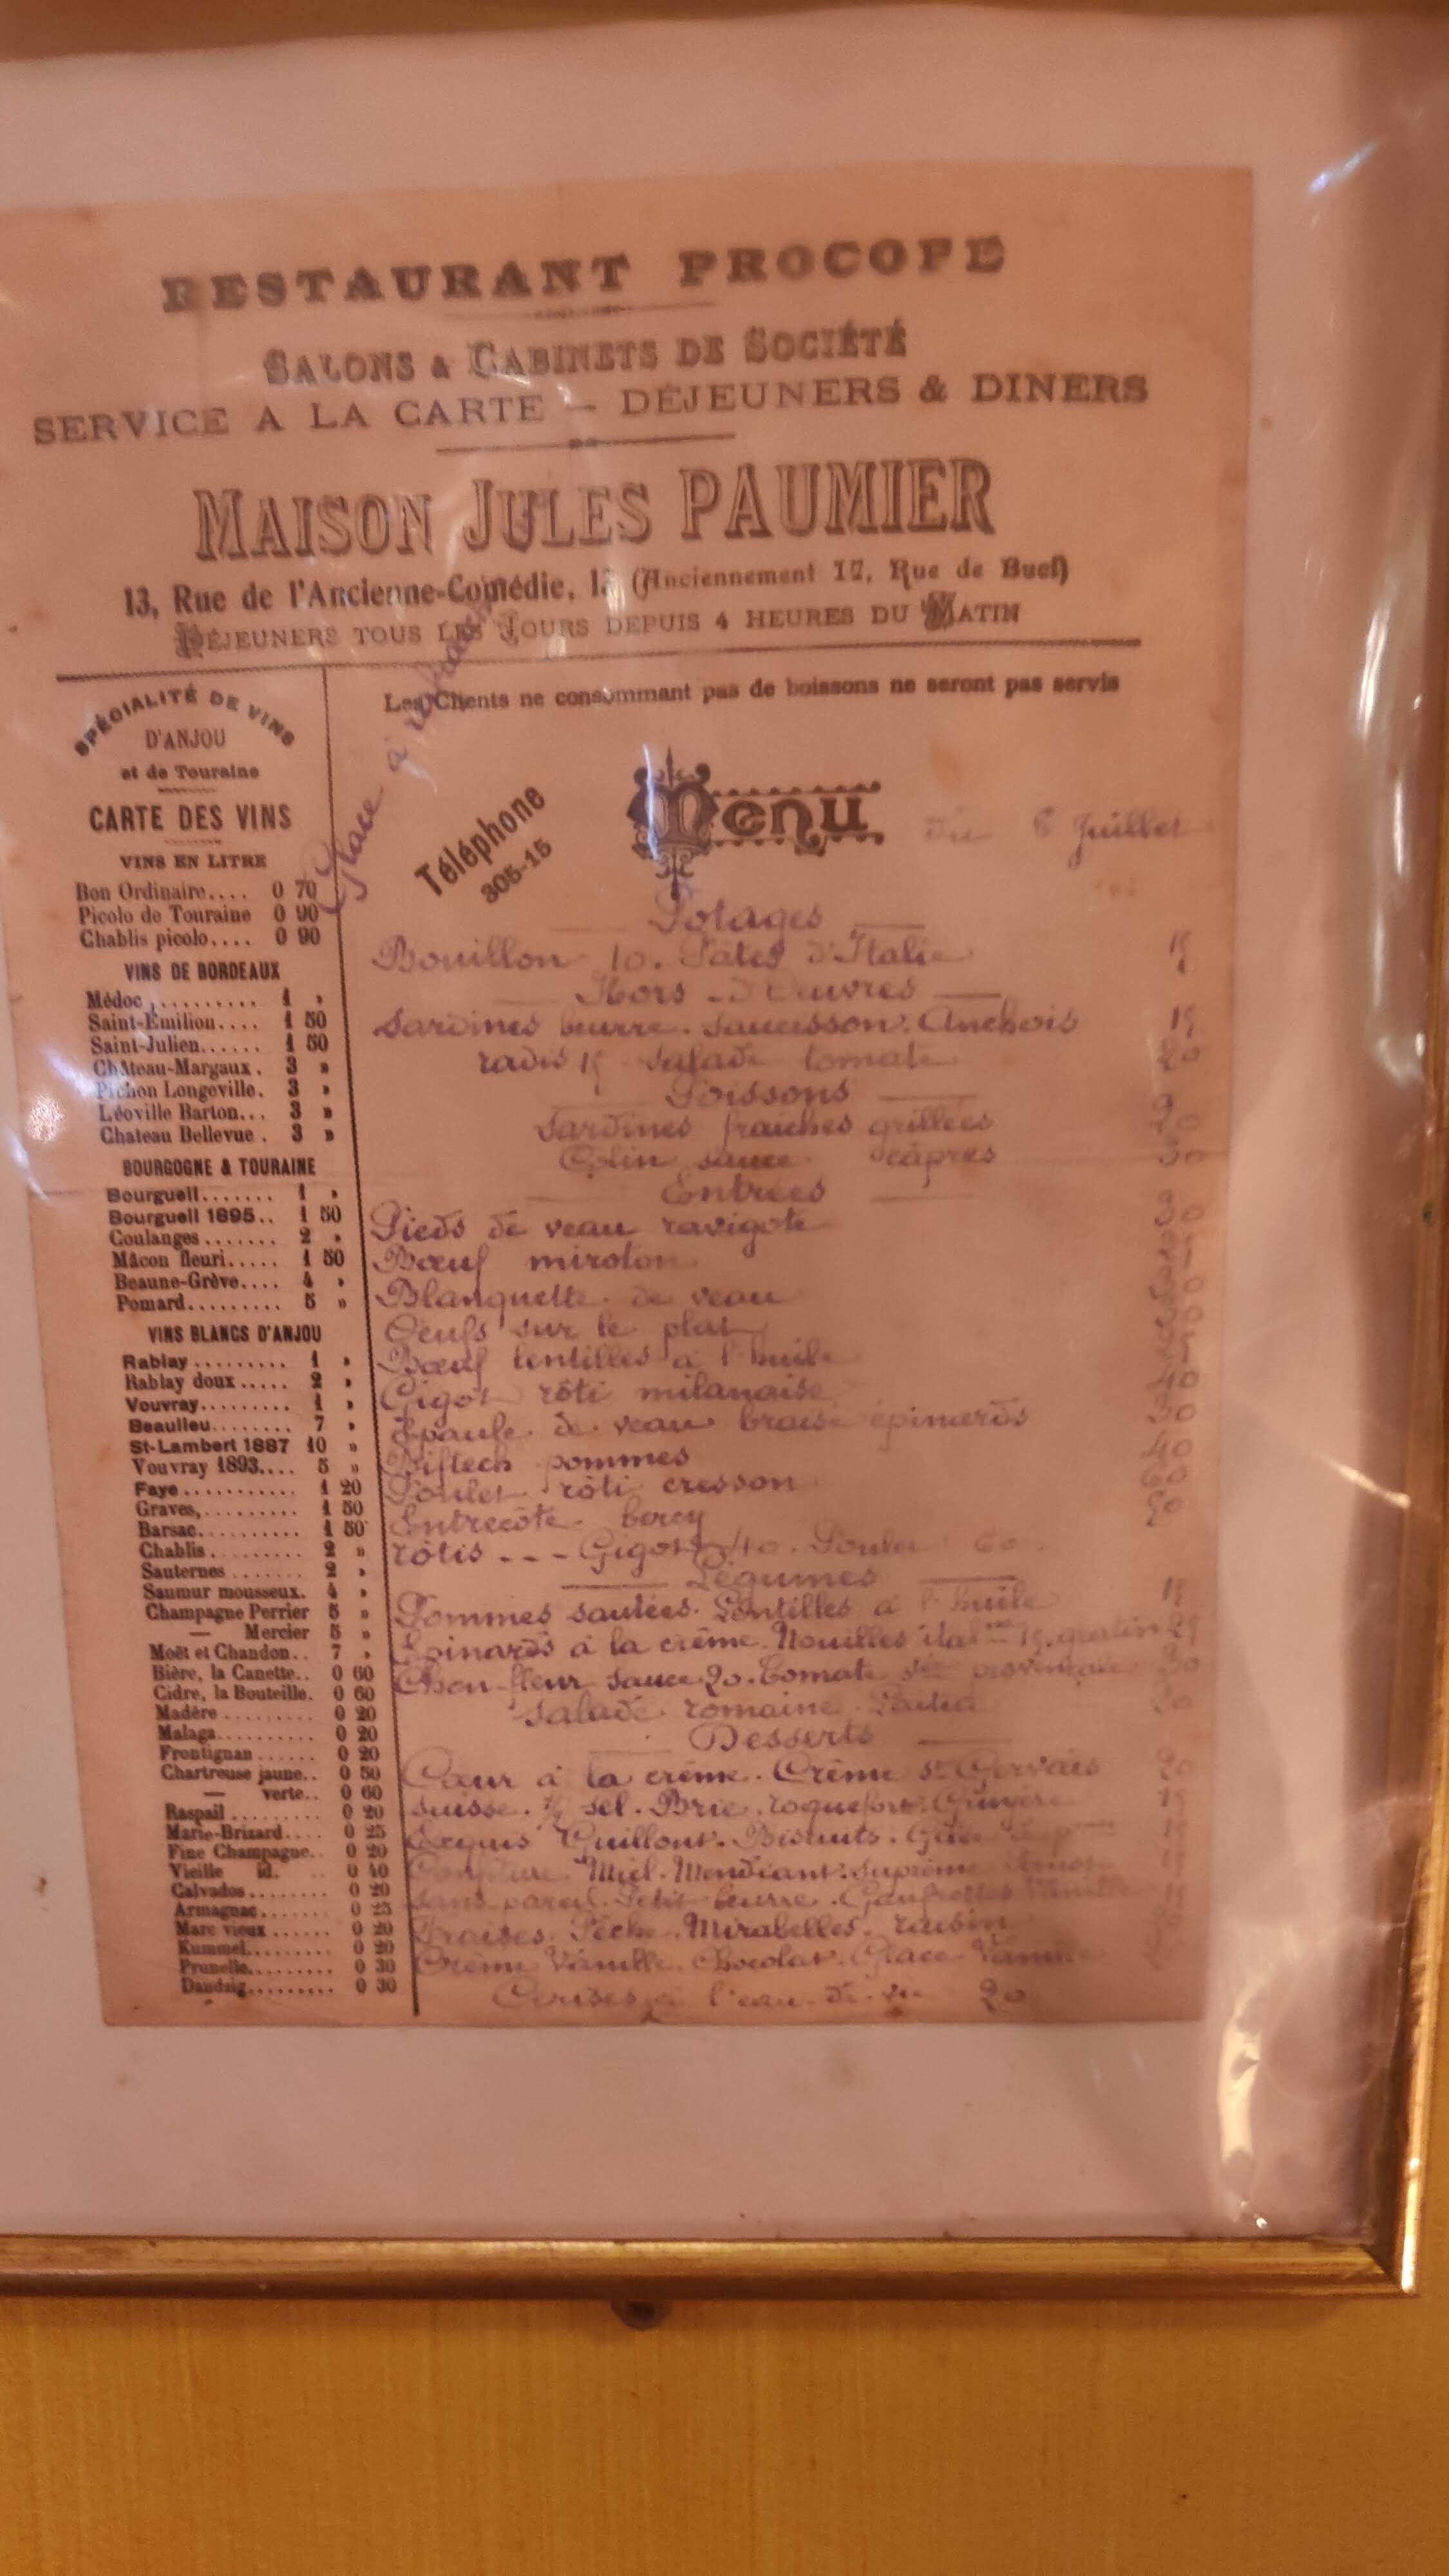 RESTAURANT PROCOPE
SALONS & CABINETS DE SOCIÉTÉ
SERVICE A LA CARTE — DÉJEUNERS & DINERS
MAISON JULES PAUMIER
13, Rue de l'Ancienne-Comédie, 13 (Anciennement 17, Rue de Buci)
DÉJEUNERS TOUS LES JOURS DEPUIS 4 HEURES DU MATIN
SPÉCIALITÉ DE VINS
D'ANJOU
et de Touraine
CARTE DES VINS
VINS EN LITRE
Bon Ordinaire.... 0 70
Picolo de Touraine 0 90
Chablis picolo.... 0 90
VINS DE BORDEAUX
Médoc.......... 1 »
Saint-Émilion.... 1 50
Saint-Julien...... 1 50
Château-Margaux. 3 »
Pichon Longeville. 3 »
Léoville Barton... 3 »
Chateau Bellevue. 3 »
BOURGOGNE & TOURAINE
Bourgueil....... 1 »
Bourgueil 1895.. 1 50
Coulanges....... 2 »
Mâcon fleuri..... 1 50
Beaune-Grève.... 4 »
Pomard......... 5 »
VINS BLANCS D'ANJOU
Rablay......... 1 »
Rablay doux..... 2 »
Vouvray......... 1 »
Beaulieu........ 7 »
St-Lambert 1887 10 »
Vouvray 1893.... 5 »
Faye........... 1 20
Graves,......... 1 50
Barsac.......... 1 50
Chablis......... 2 »
Sauternes....... 2 »
Saumur mousseux. 4 »
Champagne Perrier 5 »
— Mercier 5 »
Moët et Chandon.. 7 »
Bière, la Canette.. 0 60
Cidre, la Bouteille. 0 60
Madère......... 0 20
Malaga.......... 0 20
Frontignan...... 0 20
Chartreuse jaune.. 0 50
— verte.. 0 60
Raspail......... 0 20
Marie-Brizard.... 0 25
Fine Champagne.. 0 20
Vieille id. .. 0 40
Calvados........ 0 20
Armagnac....... 0 25
Marc vieux...... 0 20
Kummel......... 0 20
Prunelle......... 0 30
Dandzig......... 0 30
Les Clients ne consommant pas de boissons ne seront pas servis
Glace à rafraichir
Téléphone
305-15
Menu du 6 Juillet
Potages
Bouillon 10. Pâtes d'Italie 15
Hors-d'Oeuvres
Sardines beurre. Saucisson. Anchois 15
radis 15 salade tomate 20
Poissons
Sardines fraiches grillées
Colin sauce câpres
Entrées
Pieds de veau ravigote 30
Bœuf miroton
Blanquette de veau
Oeufs sur le plat
Bœuf lentilles à l'huile
Gigot rôti milanaise
Epaule de veau braisé épinards
Biftech pommes
Poulet rôti cresson
Entrecôte bercy
rôtis --- Gigot 40. Poulet 60
Légumes
Pommes sautées. Lentilles à l'huile 15
Epinards à la crême. Nouilles 15. gratin 25
Chou-fleur sauce 20. Tomate provençale 30
Salade romaine. Laitue 20
Desserts
Cœur à la crême. Crême St Gervais 20
Suisse. ½ sel. Brie. roquefort. Gruyère 15
Exquis Guillout. Biscuits.
Confiture Miel. Mendiant. Suprême
Sans pareil. Petit beurre. Gaufrettes Vanille
Fraises. Pêche. Mirabelles. raisin
Crême Vanille. Chocolat. Glace Vanille
Cerises à l'eau de vie 20